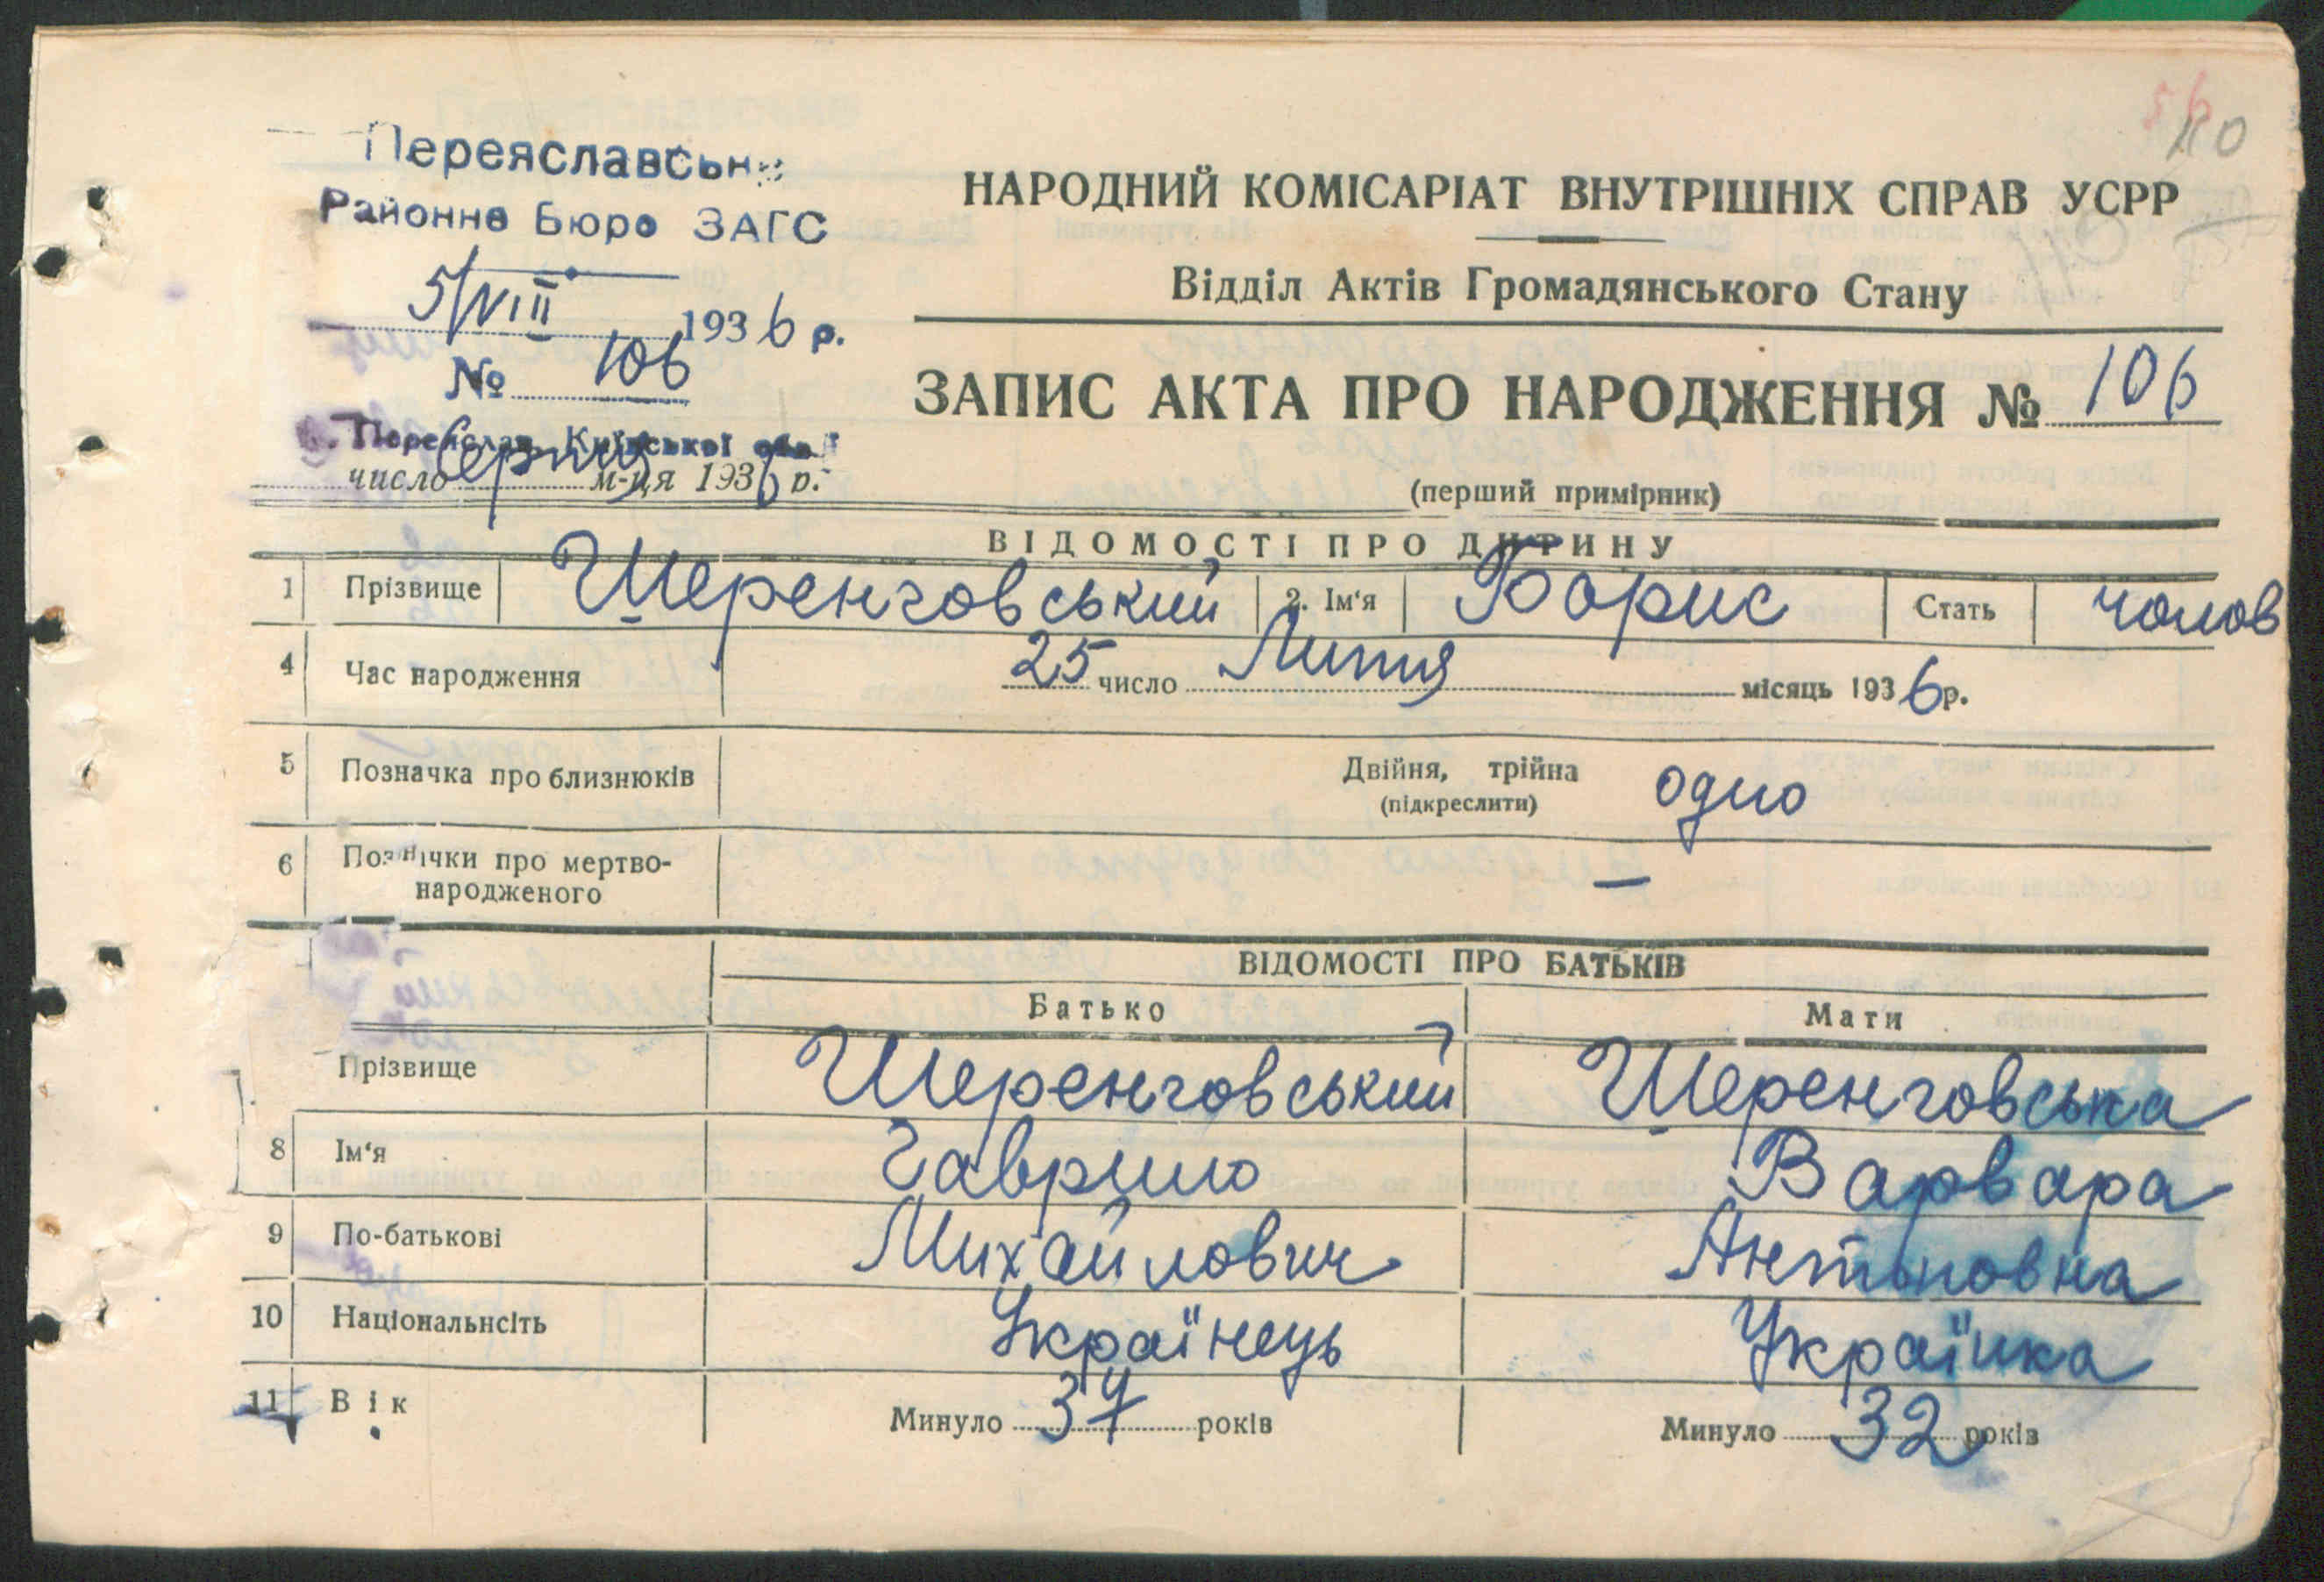 56
110
Переяславськ
Районне Бюро ЗАГС
5/VIII 1936 р.
№ 106
Переяслав Київської обл.
число Серпня м-ця 1936 р.
НАРОДНИЙ КОМІСАРІАТ ВНУТРІШНІХ СПРАВ УСРР
Відділ Актів Громадянського Стану
ЗАПИС АКТА ПРО НАРОДЖЕННЯ № 106
(перший примірник)
ВІДОМОСТІ ПРО ДИТИНУ
1 Прізвище Шеренговський 2. Ім'я Борис Стать чолов
4 Час народження 25 число Липня місяць 1936 р.
5 Позначка про близнюків Двійня, трійна одно
(підкреслити)
6 Позначки про мертво-
народженого —
ВІДОМОСТІ ПРО БАТЬКІВ
Батько Мати
Прізвище Шеренговський Шеренговська
8 Ім'я Гаврило Варвара
9 По-батькові Михайлович Антоновна
10 Національнсіть Українець Українка
11 Вік Минуло 37 років Минуло 32 років